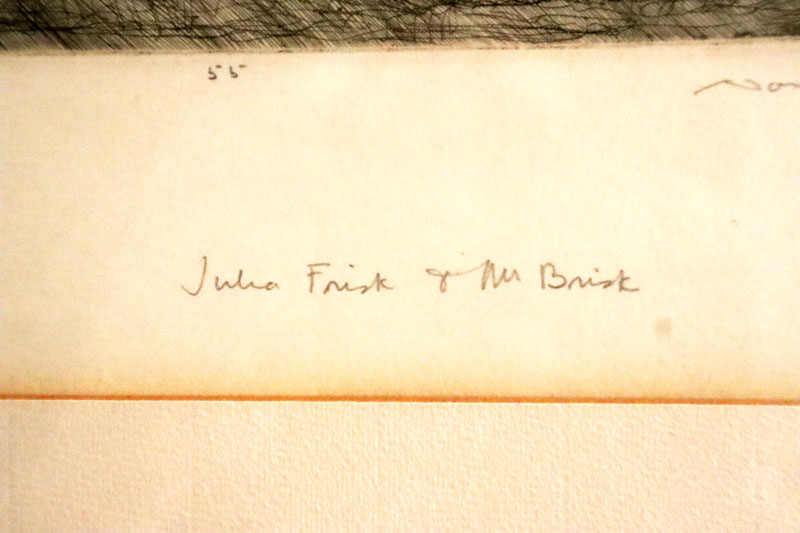 55
Julia Frisk & Mr Brisk